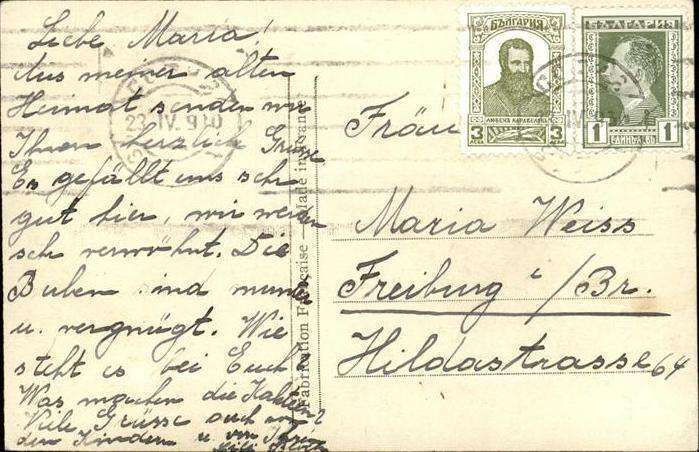 Liebe Maria!
Aus meiner alten
Heimat senden wir
Ihnen herzlich Grüsse
Es gefällt uns sehr
gut hier, wir werden
sehr verwöhnt. Die
Buben sind munter
u. vergnügt. Wie
steht es bei Euch?
Was machen die
Viele Grüsse auch von
den Kindern u. von Ihrer
23.IV.930
Fabrication Française — Made in France
БЪЛГАРИЯ
3 ЛЮБЕНЪ КАРАВЕЛОВЪ 3
БЪЛГАРИЯ
1 ЕДИНЪ ЛВ. 1
Fräu
Maria Weiss
Freiburg i/Br.
Hildastrasse 64